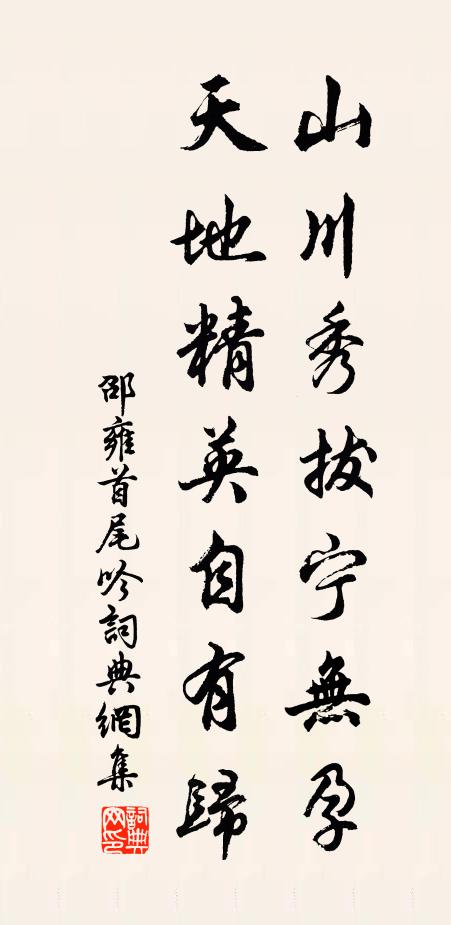 山川秀拔宁無孕
天地精英自有歸
邵雍首尾吟詞典網集
詞典網印